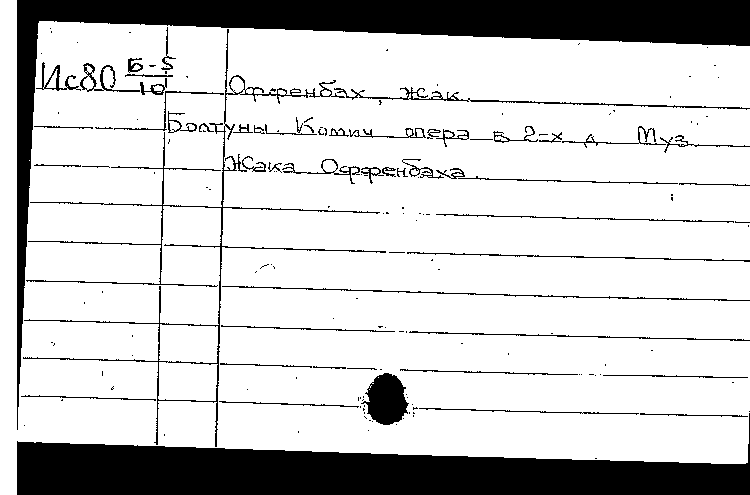 Ис80 Б-5/10 Оффенбах, Жак.
Болтуны. Комич опера в 2-х д Муз.
Жака Оффенбаха.